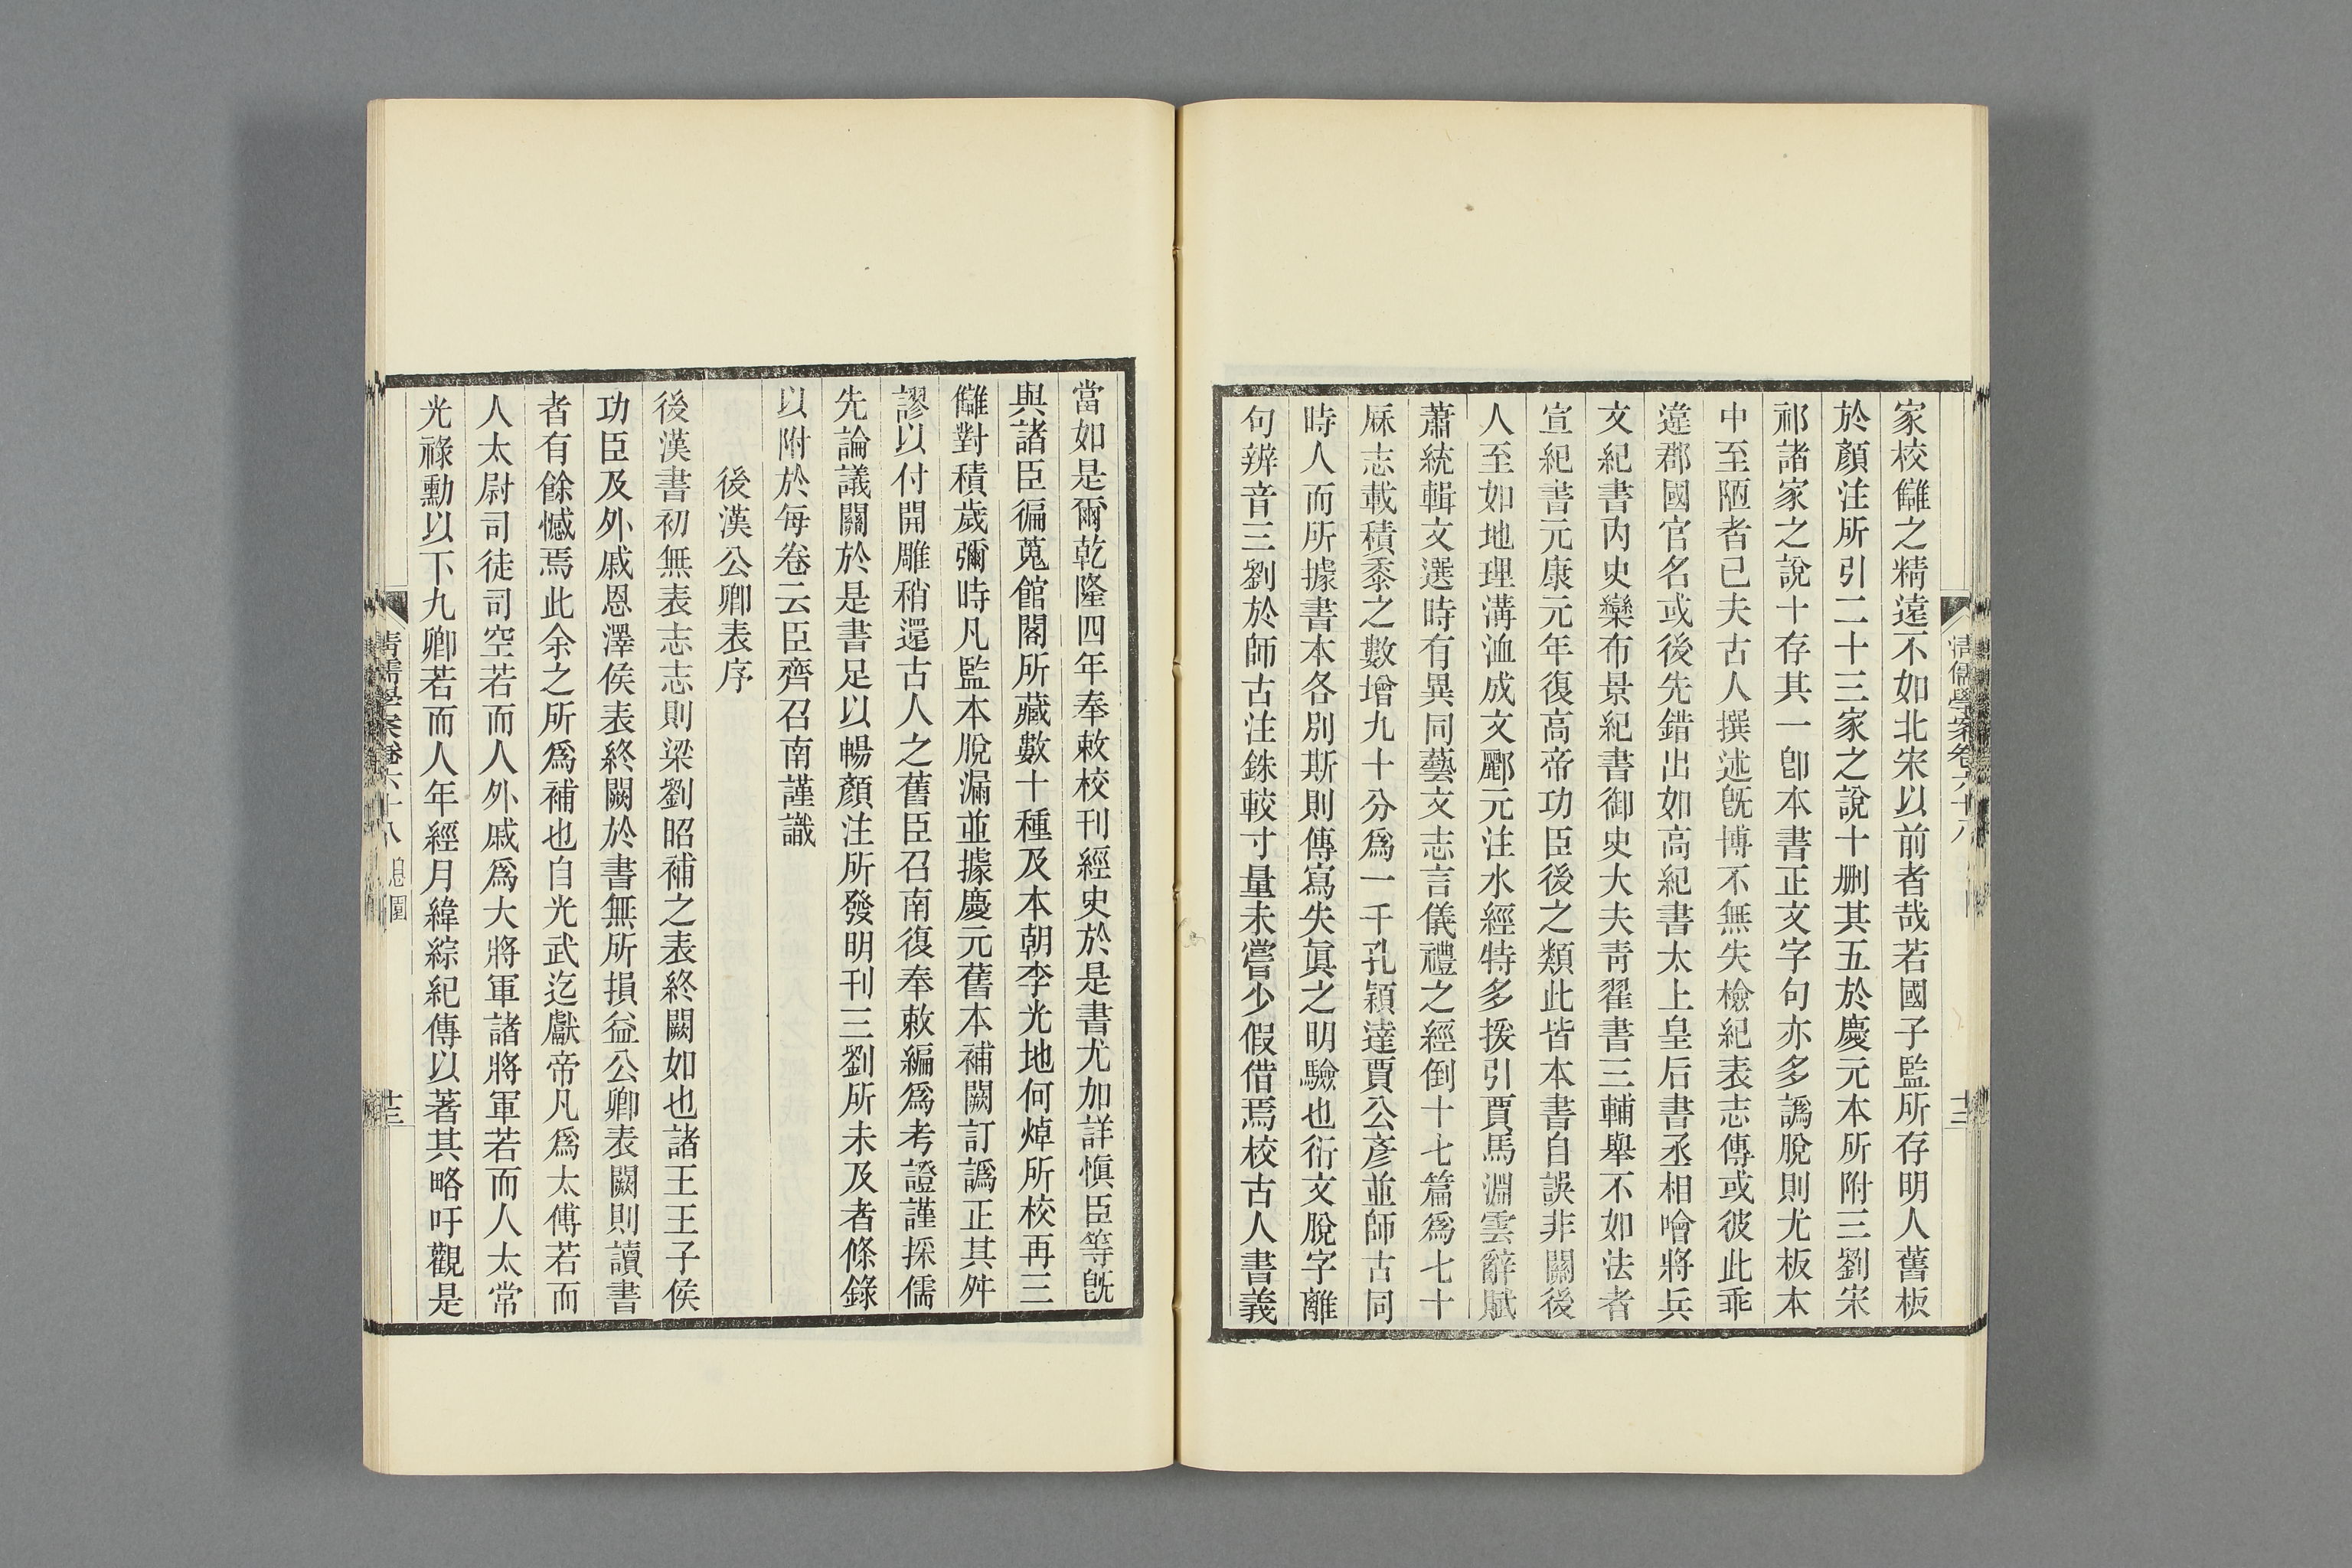 家校讎之精遠不如北宋以前者哉若國子監所存明人舊板
於顏注所引二十三家之說十刪其五於慶元本所附三劉宋
祁諸家之說十存其一卽本書正文字句亦多譌脫則尤板本
中至陋者已夫古人撰述旣博不無失檢紀表志傳或彼此乖
違郡國官名或後先錯出如高紀書太上皇后書丞相噲將兵
文紀書內史欒布景紀書御史大夫靑翟書三輔舉不如法者
宣紀書元康元年復高帝功臣後之類此皆本書自誤非關後
人至如地理溝洫成文酈元注水經特多援引賈馬淵雲辭賦
蕭統輯文選時有異同藝文志言儀禮之經倒十七篇爲七十
厤志載積黍之數增九十分爲一千孔穎達賈公彥並師古同
時人而所據書本各別斯則傳寫失眞之明驗也衍文脫字離
句辨音三劉於師古注銖較寸量未嘗少假借焉校古人書義
淸儒學案卷六十八
十二
當如是爾乾隆四年奉敕校刊經史於是書尤加詳愼臣等旣
與諸臣徧蒐館閣所藏數十種及本朝李光地何焯所校再三
讎對積歲彌時凡監本脫漏並據慶元舊本補闕訂譌正其舛
謬以付開雕稍還古人之舊臣召南復奉敕編爲考證謹採儒
先論議關於是書足以暢顏注所發明刊三劉所未及者條錄
以附於每卷云臣齊召南謹識
後漢公卿表序
後漢書初無表志志則梁劉昭補之表終闕如也諸王王子侯
功臣及外戚恩澤侯表終闕於書無所損益公卿表闕則讀書
者有餘憾焉此余之所爲補也自光武迄獻帝凡爲太傅若而
人太尉司徒司空若而人外戚爲大將軍諸將軍若而人太常
光祿勳以下九卿若而人年經月緯綜紀傳以著其略吁觀是
淸儒學案卷六十八 息園
十三